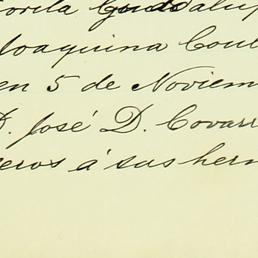 Guadalup
Joaquina Cou
en 5 de Noviem
D. José D. Covarr
eros á sus her